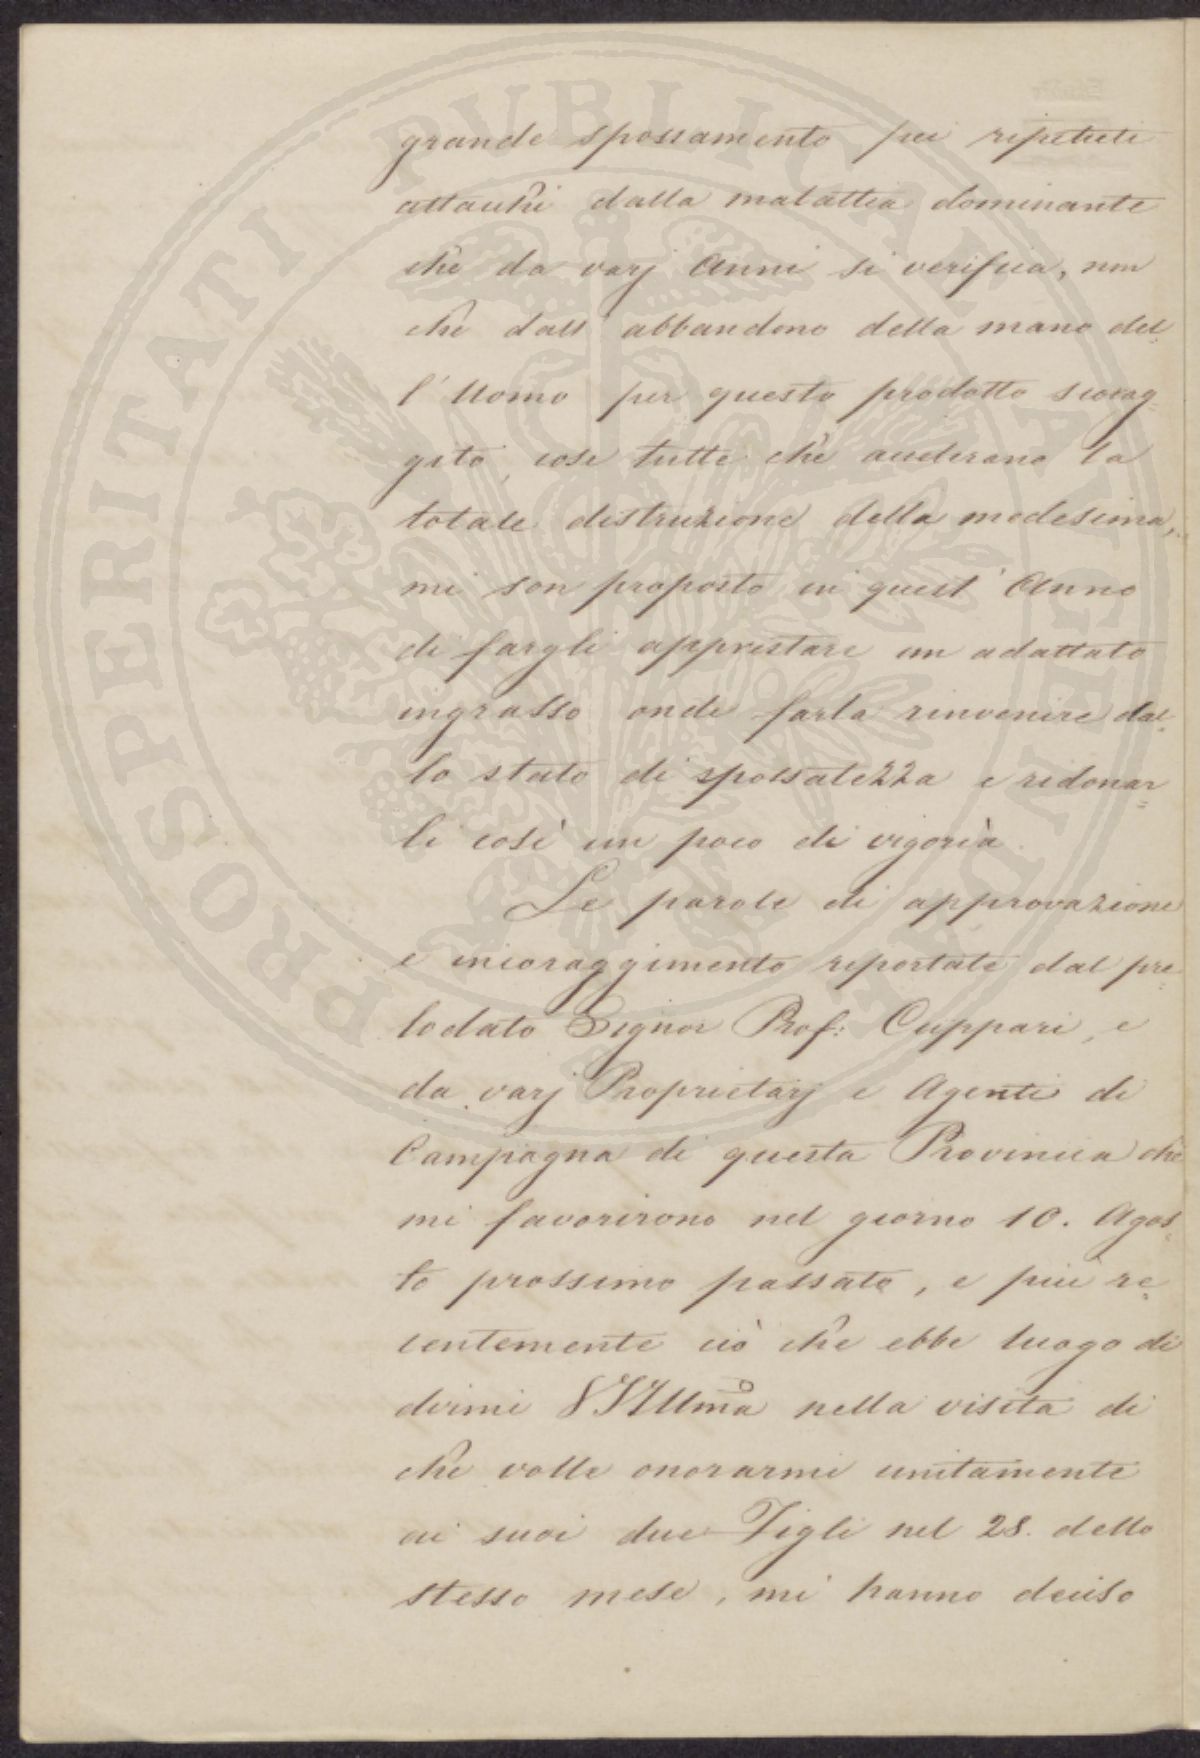 grande spossamento pei ripetuti
attacchi dalla malattia dominante
che da varj Anni si verifica, non
che dall' abbandono della mano del=
l'Uomo per questo prodotto scorag=
gito, cose tutte che accelerano la
totale distruzione della medesima,
mi son proposto in quest' Anno
di fargli apprestare un adattato
ingrasso onde farla rinvenire dal=
lo stato di spossatezza e ridonar=
li così un poco di vigoria.
Le parole di approvazione
e incoraggimento riportate dal pre=
lodato Signor Prof: Cuppari, e
da varj Proprietarj e Agenti di
Campagna di questa Provincia che
mi favorirono nel giorno 10. Agos=
to prossimo passato, e più re=
centemente ciò che ebbe luogo di
dirmi VS Illma nella visita di
che volle onorarmi unitamente
ai suoi due Figli nel 28. dello
stesso mese, mi hanno deciso
PROSPERITATI PUBLICAE AUGENDAE